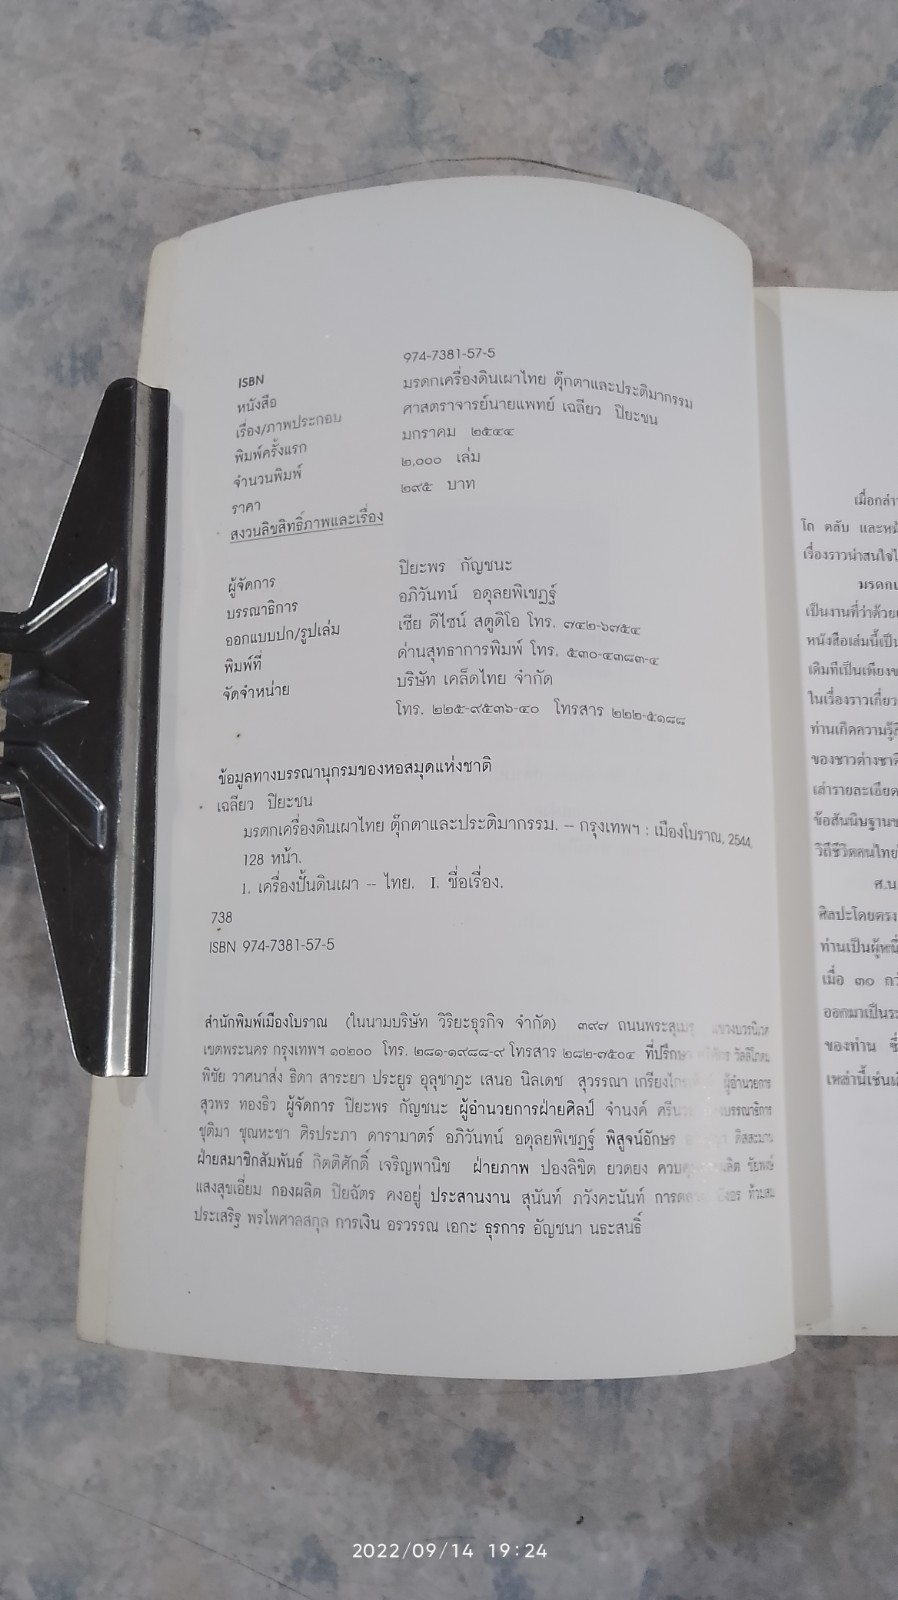 ISBN 974-7381-57-5
หนังสือ มรดกเครื่องดินเผาไทย ตุ๊กตาและประติมากรรม
เรื่อง/ภาพประกอบ ศาสตราจารย์นายแพทย์ เฉลียว ปิยะชน
พิมพ์ครั้งแรก มกราคม ๒๕๔๔
จำนวนพิมพ์ ๒,๐๐๐ เล่ม
ราคา ๒๙๕ บาท
สงวนลิขสิทธิ์ภาพและเรื่อง
ผู้จัดการ ปิยะพร กัญชนะ
บรรณาธิการ อภิวันทน์ อดุลยพิเชฏฐ์
ออกแบบปก/รูปเล่ม เซีย ดีไซน์ สตูดิโอ โทร. ๗๔๒-๖๗๕๔
พิมพ์ที่ ด่านสุทธาการพิมพ์ โทร. ๕๓๐-๔๓๘๓-๔
จัดจำหน่าย บริษัท เคล็ดไทย จำกัด
โทร. ๒๒๕-๙๕๓๖-๔๐ โทรสาร ๒๒๒-๕๑๘๘
ข้อมูลทางบรรณานุกรมของหอสมุดแห่งชาติ
เฉลียว ปิยะชน
มรดกเครื่องดินเผาไทย ตุ๊กตาและประติมากรรม. – กรุงเทพฯ : เมืองโบราณ, 2544.
128 หน้า.
1. เครื่องปั้นดินเผา – ไทย. I. ชื่อเรื่อง.
738
ISBN 974-7381-57-5
สำนักพิมพ์เมืองโบราณ (ในนามบริษัท วิริยะธุรกิจ จำกัด) ๓๙๗ ถนนพระสุเมรุ แขวงบวรนิเวศ
เขตพระนคร กรุงเทพฯ ๑๐๒๐๐ โทร. ๒๘๑-๑๙๘๘-๙ โทรสาร ๒๘๒-๗๕๐๔ ที่ปรึกษา วัลลิโภดม
พิชัย วาศนาส่ง ธิดา สาระยา ประยูร อุลุชาฎะ เสนอ นิลเดช สุวรรณา ผู้อำนวยการ
สุวพร ทองธิว ผู้จัดการ ปิยะพร กัญชนะ ผู้อำนวยการฝ่ายศิลป์ จำนงค์ บรรณาธิการ
ชุติมา ชุณหะชา ศิรประภา ดารามาตร์ อภิวันทน์ อดุลยพิเชฏฐ์ พิสูจน์อักษร
ฝ่ายสมาชิกสัมพันธ์ กิตติศักดิ์ เจริญพานิช ฝ่ายภาพ ปองลิขิต ยวดยง
แสงสุขเอี่ยม กองผลิต ปิยฉัตร คงอยู่ ประสานงาน สุนันท์ ภวังคะนันท์
ประเสริฐ พรไพศาลสกุล การเงิน อรวรรณ เอกะ ธุรการ อัญชนา นธะสนธิ์
เมื่อกล่าว
โถ ตลับ และหม้
เรื่องราวน่าสนใจ
มรดกเ
เป็นงานที่ว่าด้วย
หนังสือเล่มนี้เป็น
เดิมทีเป็นเพียง
ในเรื่องราวเกี่ยว
ท่านเกิดความรู้สึ
ของชาวต่างชาติ
เล่ารายละเอียด
ข้อสันนิษฐาน
วิถีชีวิตคนไทย
ศ.น.
ศิลปะโดยตรง
ท่านเป็นผู้หนึ่
เมื่อ ๓๐ กว่
ออกมาเป็น
ของท่าน
เหล่านี้เช่น
2022/09/14 19:24